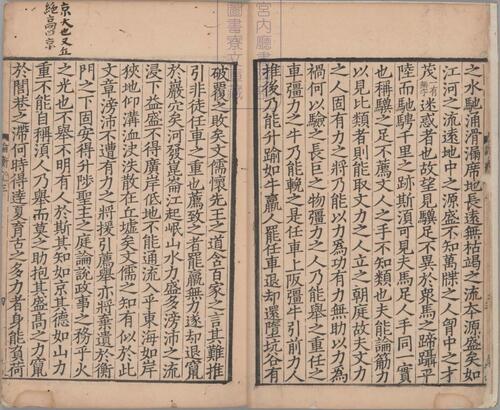 宮內廳書
之水馳涌滑漏席地長遠無枯竭之流本源盛矣如
江河之流遠地中之源盛不知萬牒之人胷中之才
茂一有無字迷惑者也故望見驥足不異於衆馬之蹄躡平
陸而馳騁千里之跡斯須可見夫馬足人手同一實
也稱驥之足不薦文人之手不知類也夫能論筋力
以見比類者則能取文力之人立之朝庭故夫文力
之人固有力之將乃能以力為功有力無助以力為
禍何以驗之長巨之物彊力之人乃能舉之重任之
車彊力之牛乃能輓之是任車上阪彊牛引前力人
推後乃能升踰如牛羸人罷任車退却還墮坑谷有
圖書寮
破覆之敗矣文儒懷先王之道含百家之言其難推
引非徒任車之重也薦致之者罷羸無力遂却退竄
於巖穴矣河發崑崙江起岷山水力盛多滂沛之流
浸下益盛不得廣岸低地不能通流入乎東海如岸
狹地仰溝洫決泆散在丘墟矣文儒之知有似於此
文章滂沛不遭有力之將援引薦舉亦將棄遺於衡
門之下固安得升陟聖主之庭論說政事之務乎火
之光也不舉不明有人於斯其知如京其德如山力
重不能自稱湏人乃舉而莫之助抱其盛高之力竄
於閭巷之深何時得達奡育古之多力者身能負荷
京大也又丘
絶高曰京